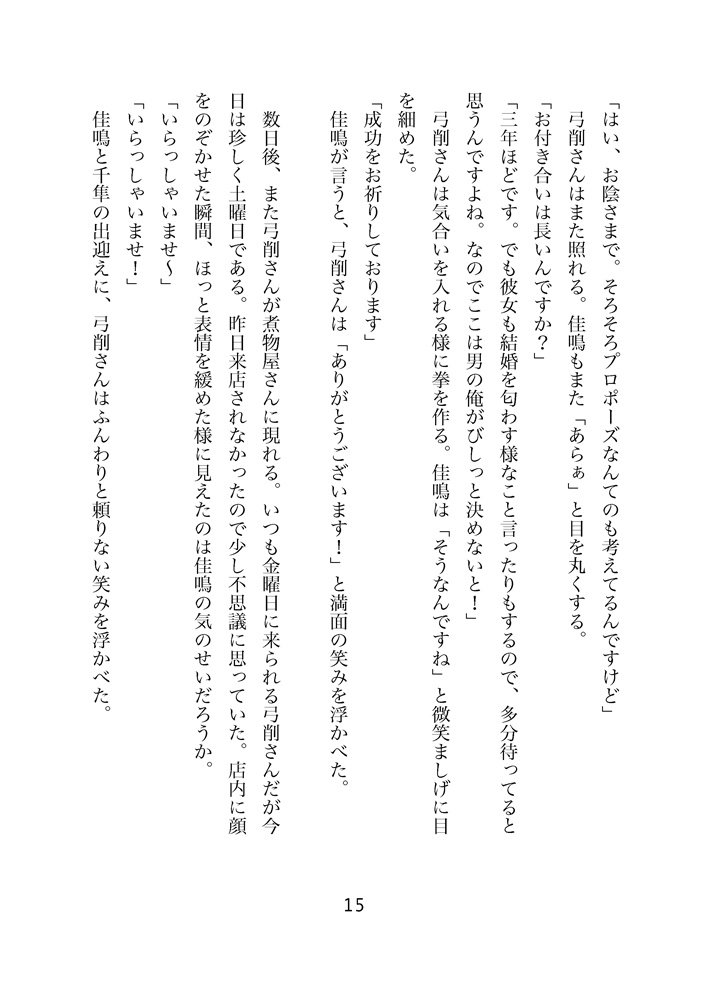 「はい、お陰さまで。そろそろプロポーズなんてのも考えてるんですけど」
弓削さんはまた照れる。佳鳴もまた「あらぁ」と目を丸くする。
「お付き合いは長いんですか？」
「三年ほどです。でも彼女も結婚を匂わす様なこと言ったりもするので、多分待ってると
思うんですよね。なのでここは男の俺がびしっと決めないと！」
弓削さんは気合いを入れる様に拳を作る。佳鳴は「そうなんですね」と微笑ましげに目
を細めた。
「成功をお祈りしております」
佳鳴が言うと、弓削さんは「ありがとうございます！」と満面の笑みを浮かべた。
数日後、また弓削さんが煮物屋さんに現れる。いつも金曜日に来られる弓削さんだが今
日は珍しく土曜日である。昨日来店されなかったので少し不思議に思っていた。店内に顔
をのぞかせた瞬間、ほっと表情を緩めた様に見えたのは佳鳴の気のせいだろうか。
「いらっしゃいませ〜」
「いらっしゃいませ！」
佳鳴と千隼の出迎えに、弓削さんはふんわりと頼りない笑みを浮かべた。
15